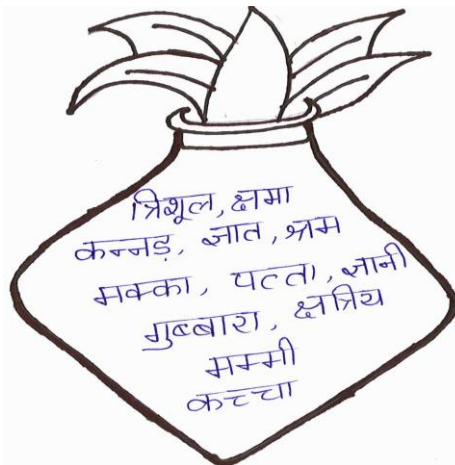 त्रिशूल, क्षमा
कन्नड़, ज्ञात, श्रम
मक्का, पत्ता, ज्ञानी
गुब्बारा, क्षत्रिय
मम्मी
कच्चा